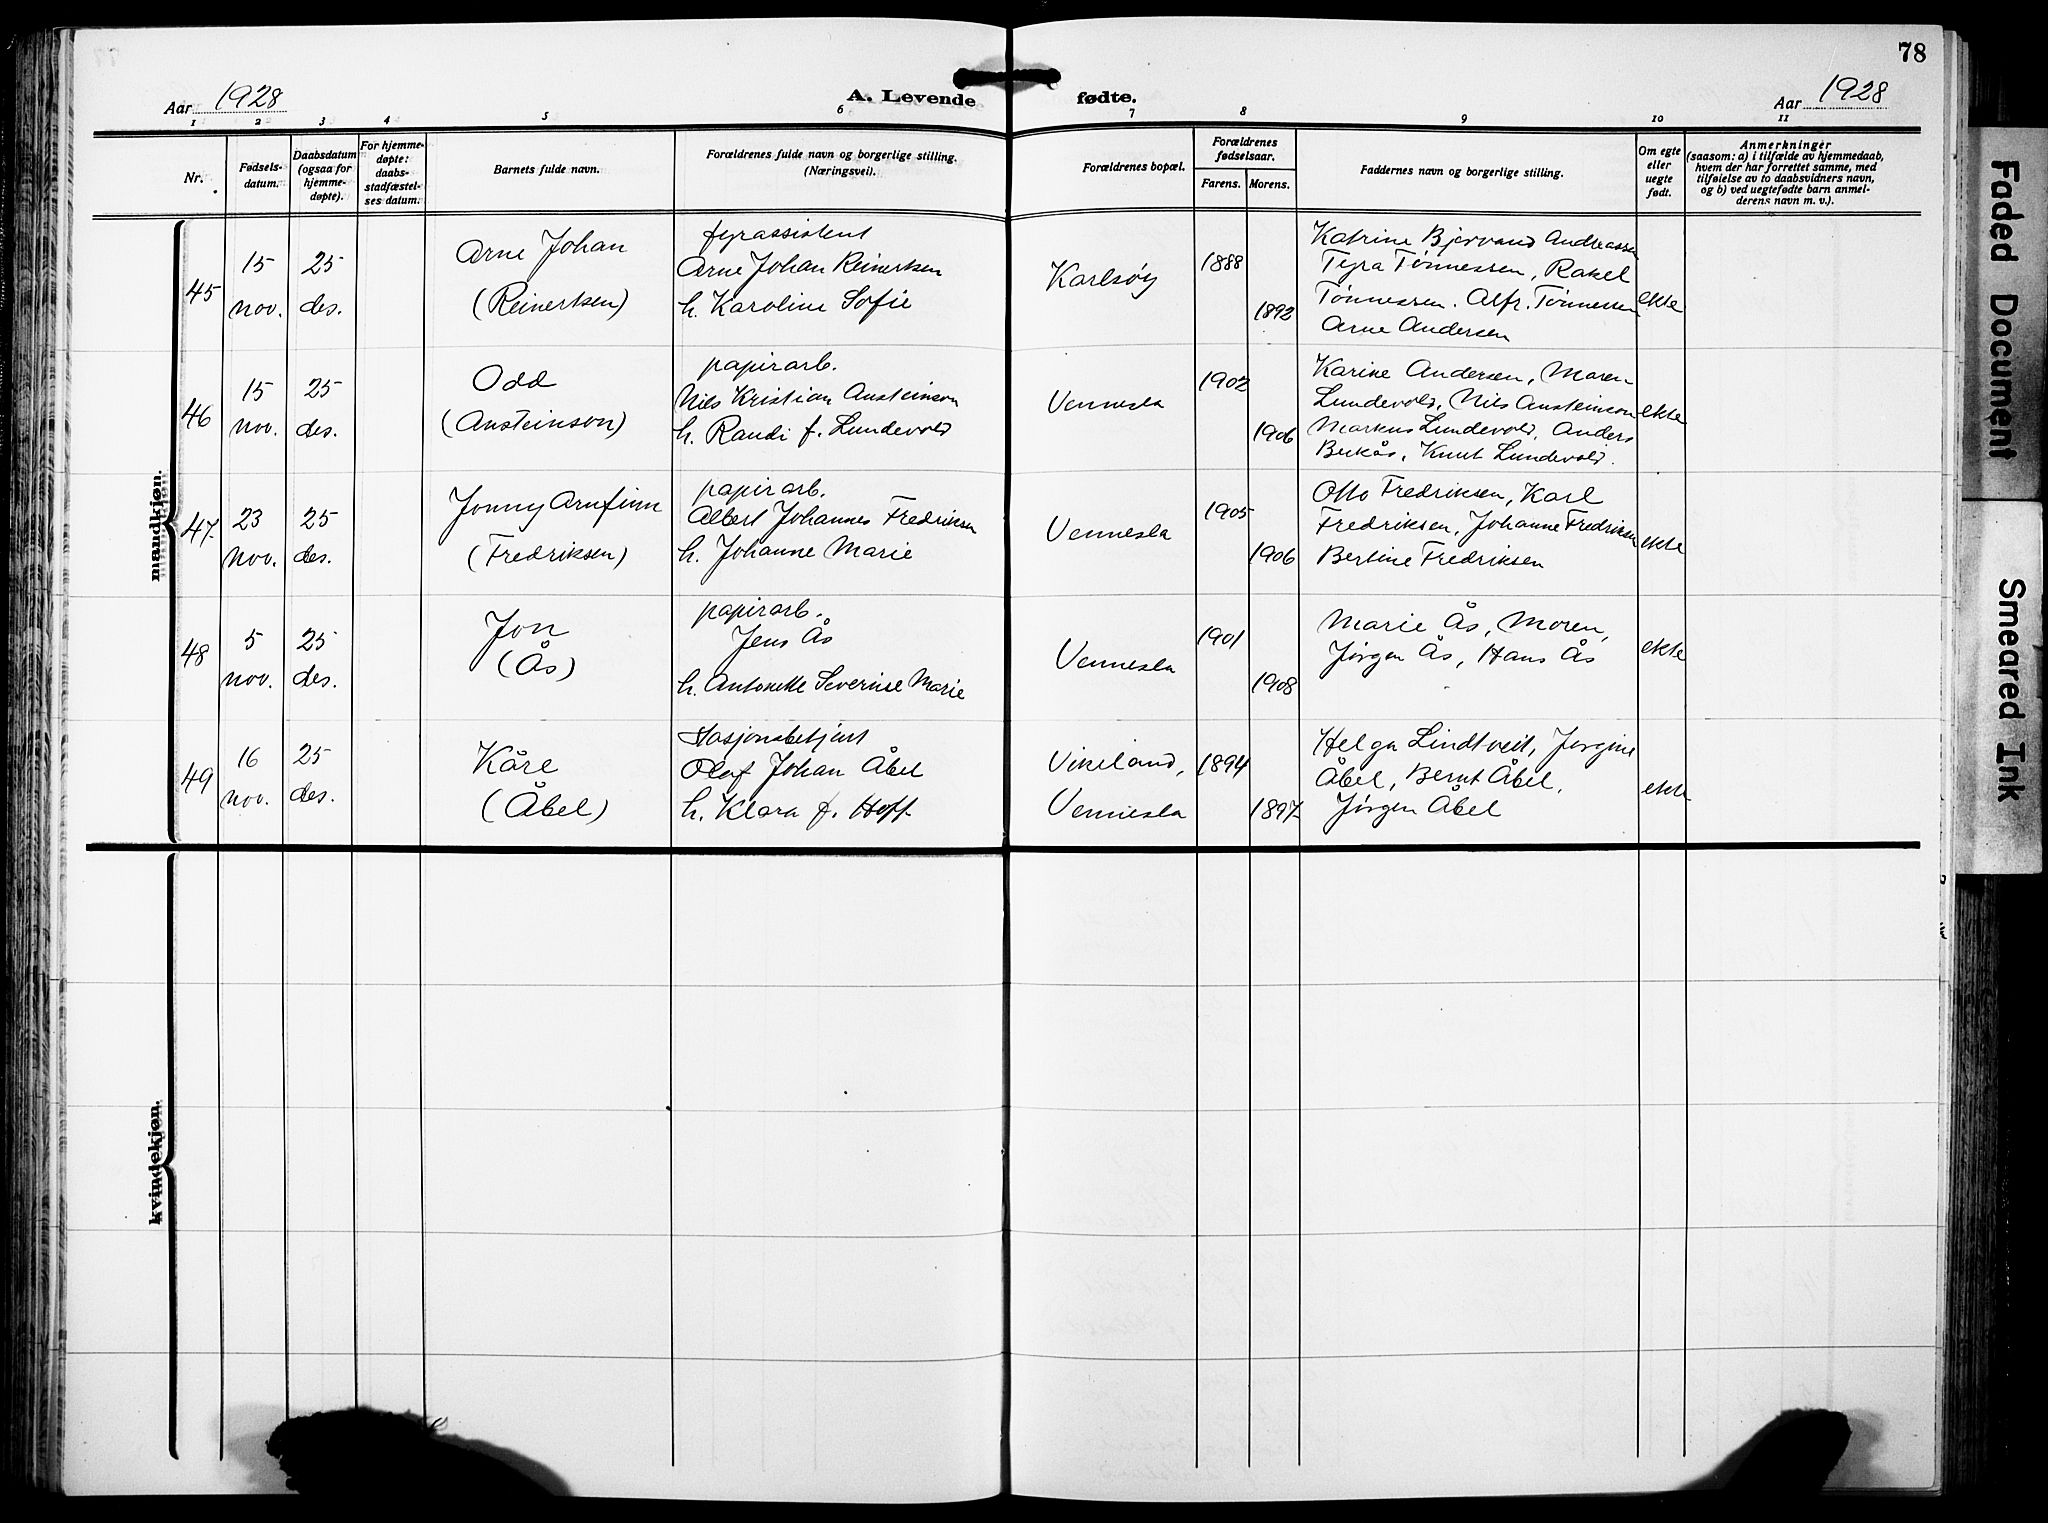 78
Aar 1928
A. Levende fødte.
Aar 1928
1 2 3 4 5 6 7 8 9 10 11
Nr.
Fødsels-
datum.
Daabsdatum
(ogsaa for
hjemme-
døpte).
For hjemme-
døpte:
daabs-
stadfæstel-
ses datum.
Barnets fulde navn.
Forældrenes fulde navn og borgerlige stilling.
(Næringsvei).
Forældrenes bopæl.
Forældrenes
fødselsaar.
Farens. Morens.
Faddernes navn og borgerlige stilling.
Om egte
eller
uegte
født.
Anmerkninger
(saasom: a) i tilfælde av hjemmedaab,
hvem der har forrettet samme, med
tilføielse av to daabsvidners navn,
og b) ved uegtefødte barn anmel-
derens navn m. v.).
mandkjøn.
45
15
nov.
25
des.
Arne Johan
(Reinertsen)
fyrassistent
Arne Johan Reinertsen
h. Karoline Sofie
Karlsöy
1888
1892
Katrine Bjorvand Andreassen
Tyra Tønnessen, Rakel
Tønnessen. Alfr. Tønnessen
Arne Andersen
ekte
46
15
nov.
25
des.
Odd
(Austeinson)
papirarb.
Nils Kristian Austeinson
h. Randi f. Lundevold
Vennesla
1902
1906
Karine Andersen, Maren
Lundevold, Nils Austeinson
Markus Lundevold, Anders
Knut Lundevold.
ekte
47
23
nov.
25
des.
Jonny Arnfinn
(Fredriksen)
papirarb.
Albert Johannes Fredriksen
h. Johanne Marie
Vennesla
1905
1906
Otto Fredriksen, Karl
Fredriksen, Johanne Fredriksen
Bertine Fredriksen
ekte
48
5
nov.
25
des.
Jon
(Ås)
papirarb.
Jens Ås
h. Antonette Severine Marie
Vennesla
1901
1908
Marie Ås, Moren,
Jørgen Ås, Hans Ås
ekte
49
16
nov.
25
des.
Kåre
(Åbel)
stasjonsbetjent
Olaf Johan Åbel
h. Klara f. Hoff
Vikeland,
Vennesla
1894
1897
Helga Lindtveit, Jørgine
Åbel, Bernt Åbel,
Jørgen Åbel
ekte
kvindekjøn.
Faded Document
Smeared Ink